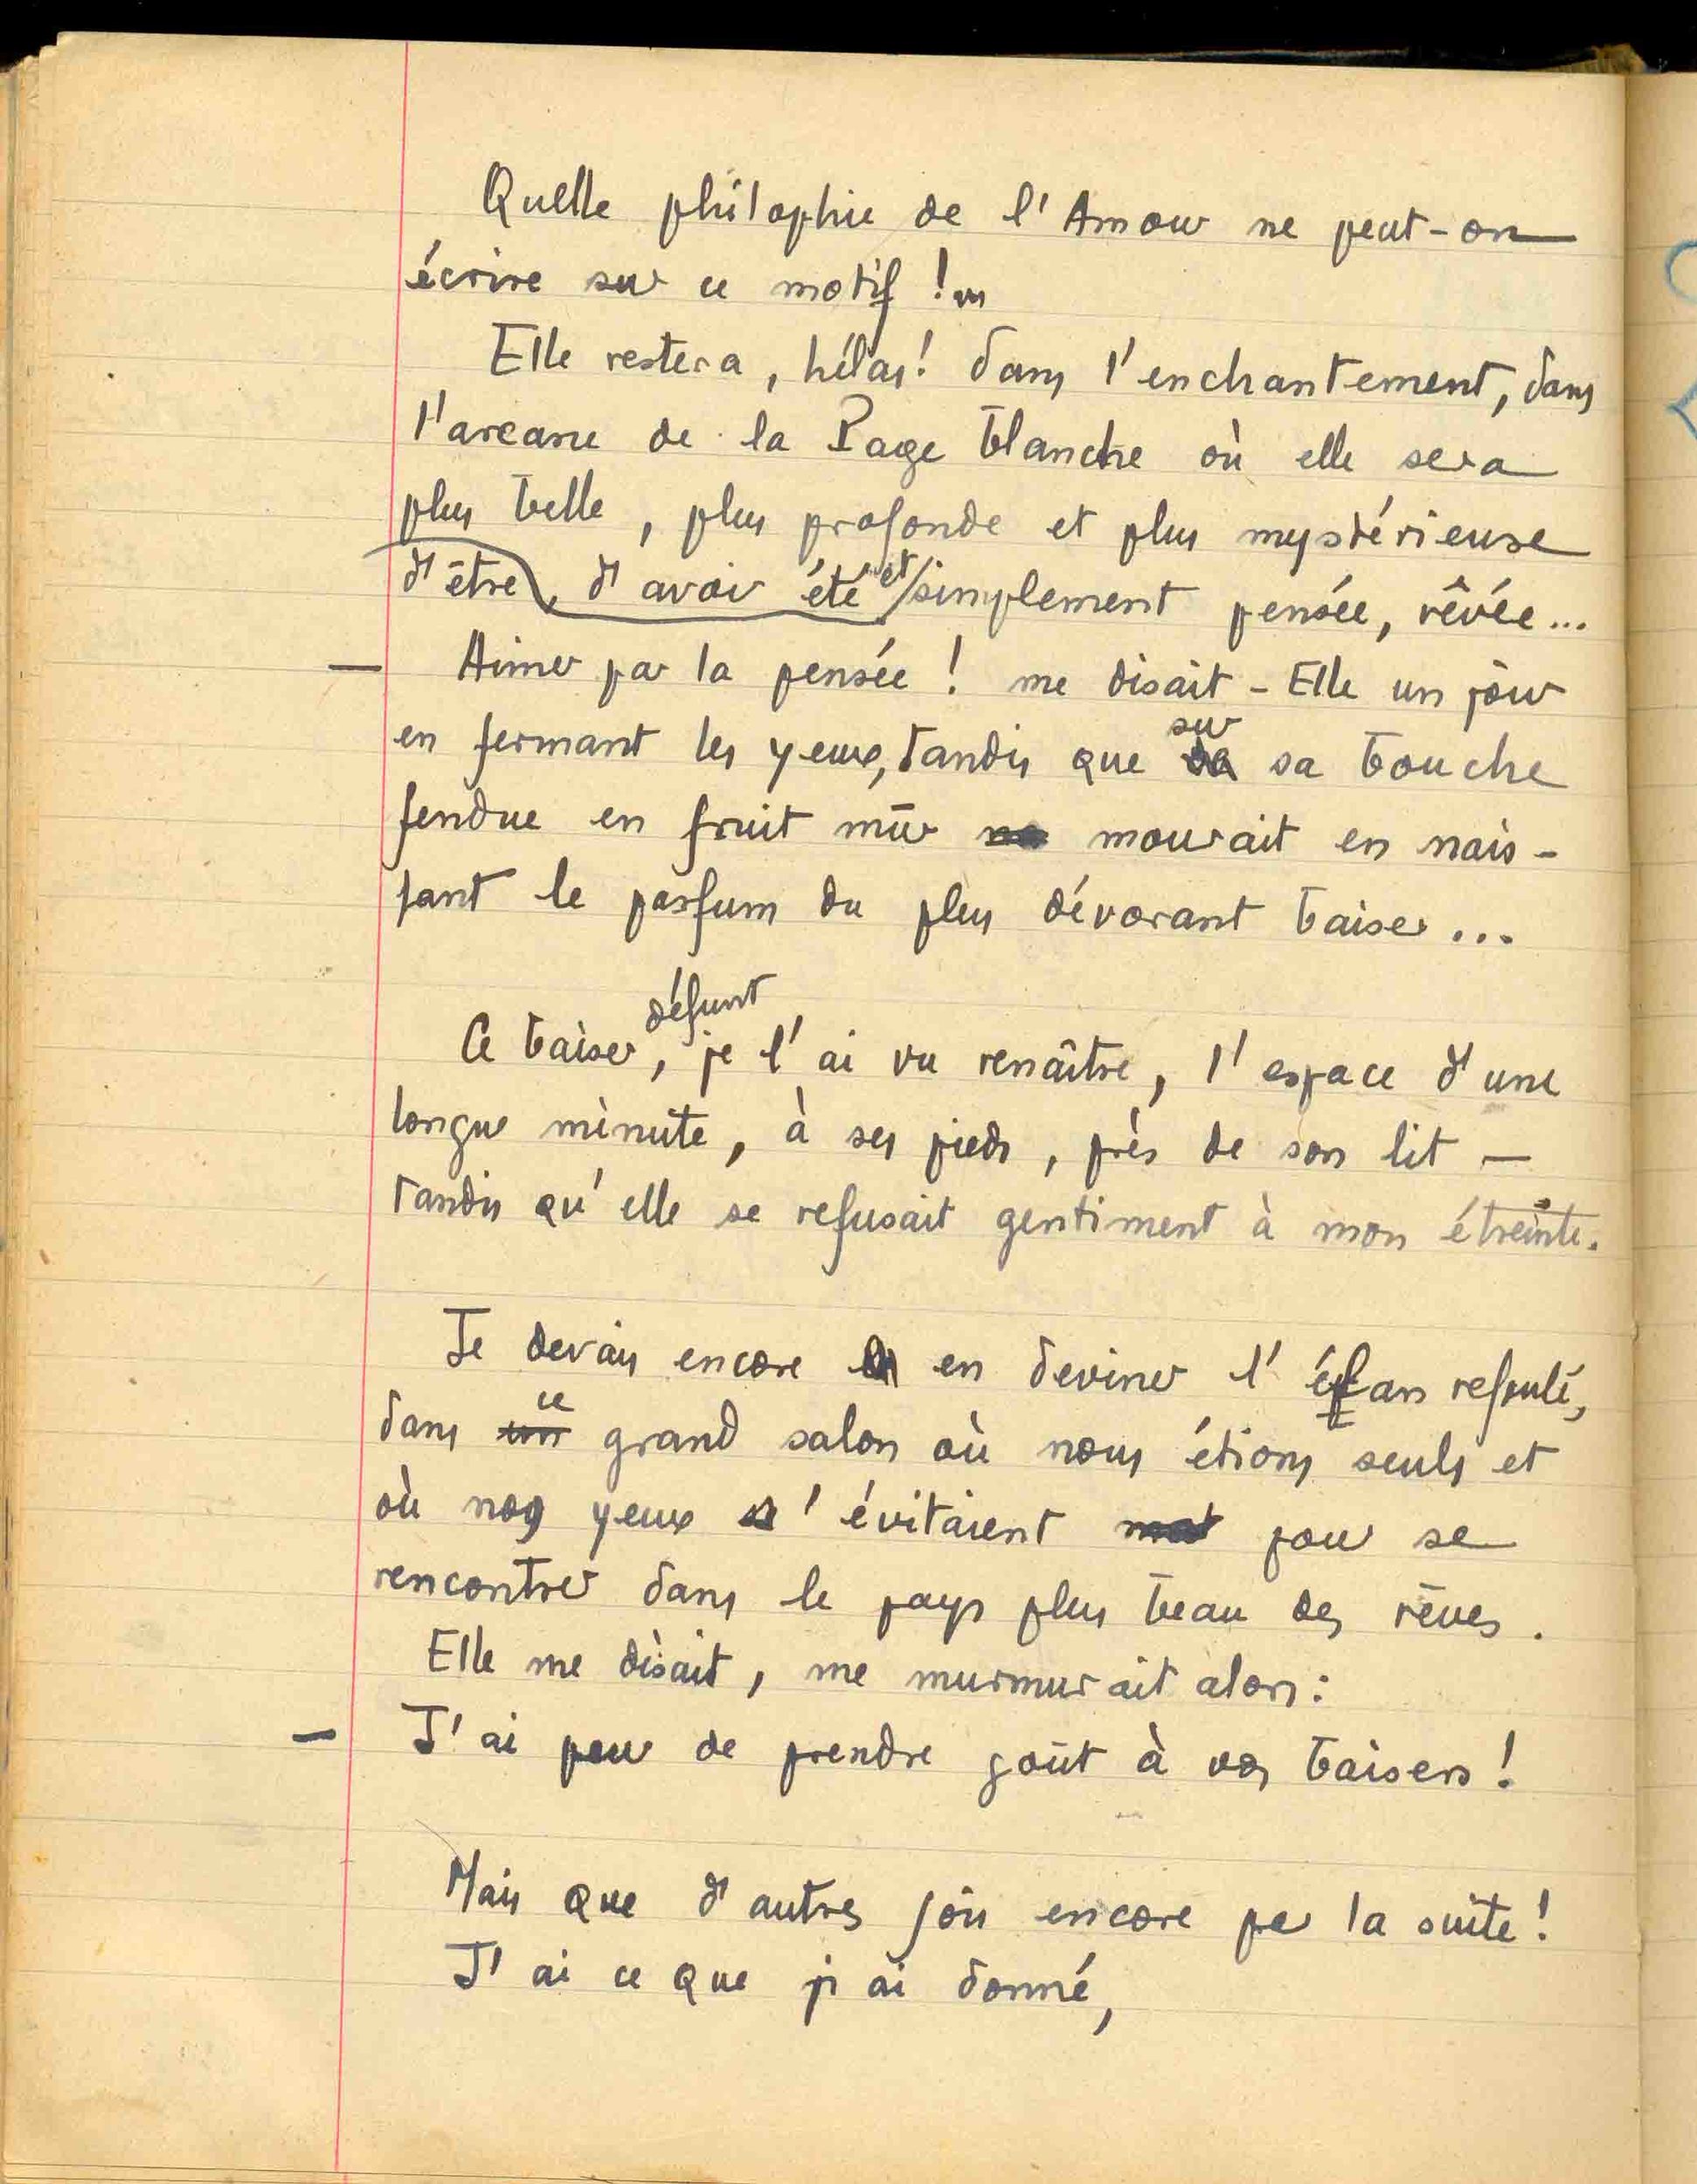 Quelle philophie de l'Amour ne peut-on
écrire sur ce motif !
Elle restera, hélas! dans l'enchantement, dans
l'arcane de la Page blanche où elle sera
plus belle, plus profonde et plus mystérieuse
d'être, d'avoir été et simplement pensée, rêvée...
— Aimer par la pensée ! me disait-Elle un jour
en fermant les yeux, tandis que sur sa bouche
fendue en fruit mûr mourait en nais-
sant le parfum du plus dévorant baiser...
Ce baiser défunt, je l'ai vu renaître, l'espace d'une
longue minute, à ses pieds, près de son lit —
tandis qu'elle se refusait gentiment à mon étreinte.
Je devais encore en deviner l'élan refoulé,
dans un ce grand salon où nous étions seuls et
où nos yeux s'évitaient pour se
rencontrer dans le pays plus beau des rêves.
Elle me disait, me murmurait alors :
— J'ai peur de prendre goût à vos baisers !
Mais que d'autres fois encore par la suite !
J'ai ce que j'ai donné,